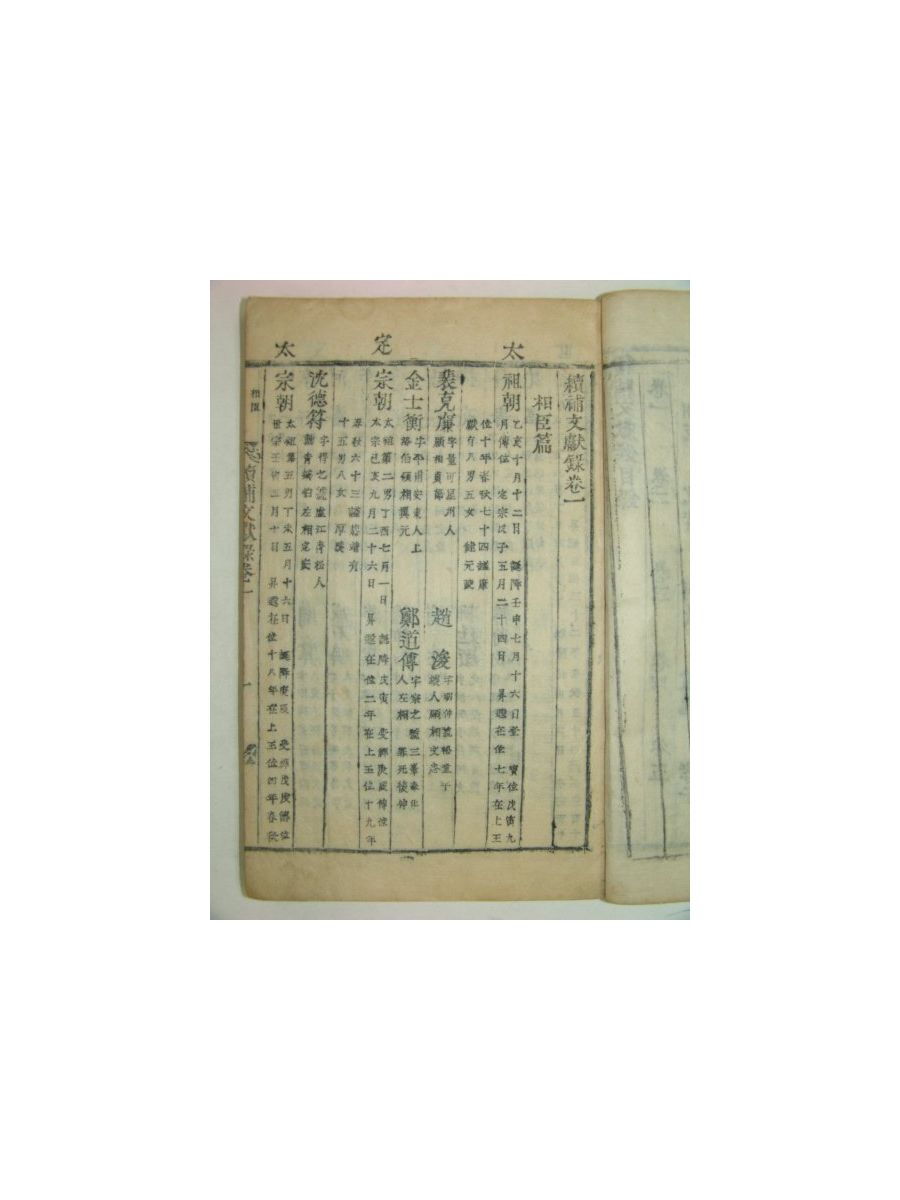 續補文獻錄卷一
相臣篇
太祖朝 乙亥十月十二日 誕降壬申七月十六日登 寶位戊寅九
月傳位 定宗戊子五月二十四日 昇遐在位七年在上王
位十年春秋七十四 健元陵
獻有八男五女
裴克廉 字量可星州人
領相貞節
趙浚 字明仲號松堂
人領相文忠
金士衡 字平甫安東人上
洛伯領相翼元
鄭道傳 字宗之號三峯奉化
人左相 罪死後伸
定宗朝 太祖第二男丁酉七月一日 誕降戊寅 受禪庚辰傳位
太宗己亥九月二十六日 昇遐在位二年在上王位十九年
春秋六十三 有
十五男八女 厚陵
沈德符 字得之號蘆江靑松人
靑城伯左相定安
太宗朝 太祖第五男丁未五月十六日 誕降庚辰 受禪戊戌傳位
世宗壬寅五月十日 昇遐在位十八年在上王位四年春秋
相臣
續補文獻錄卷一
一